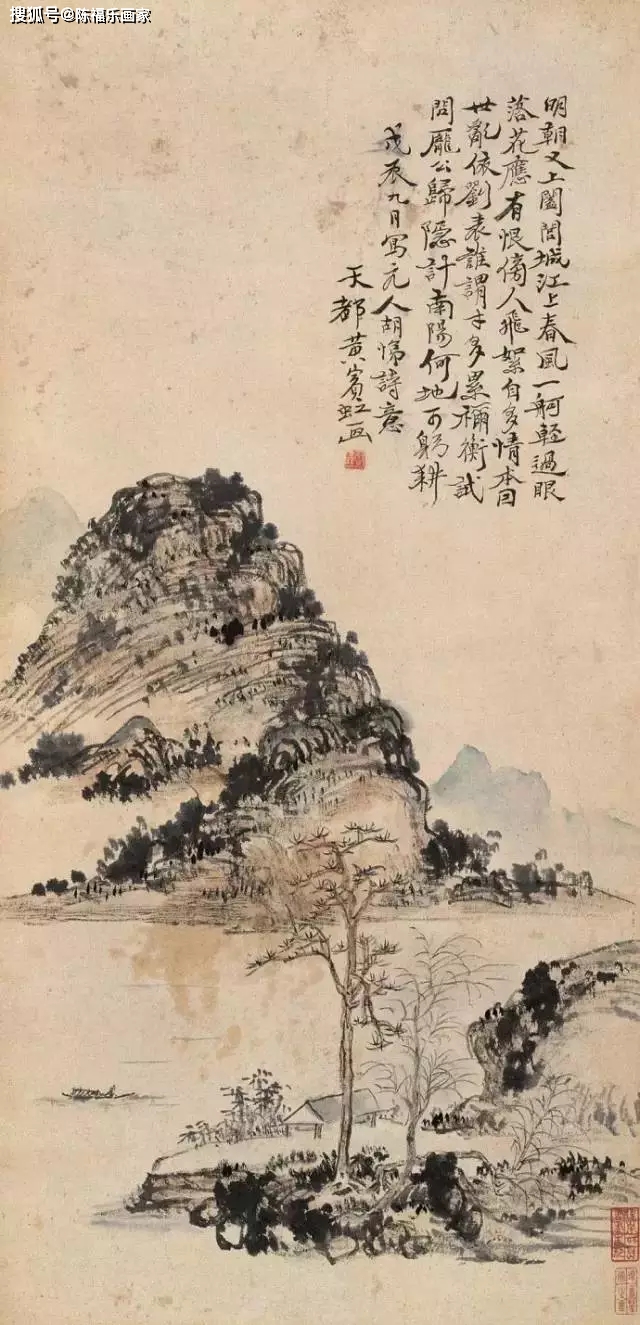 搜狐号@陈福乐画家
明朝又上闔閭城江上春風一舸輕過眼
落花應有恨傍人飛絮自多情本因
世亂依劉表誰謂才多累禰衡試
問龐公歸隱計南陽何地可躬耕
戊辰九月寫元人胡詩意
天都黃賓虹画